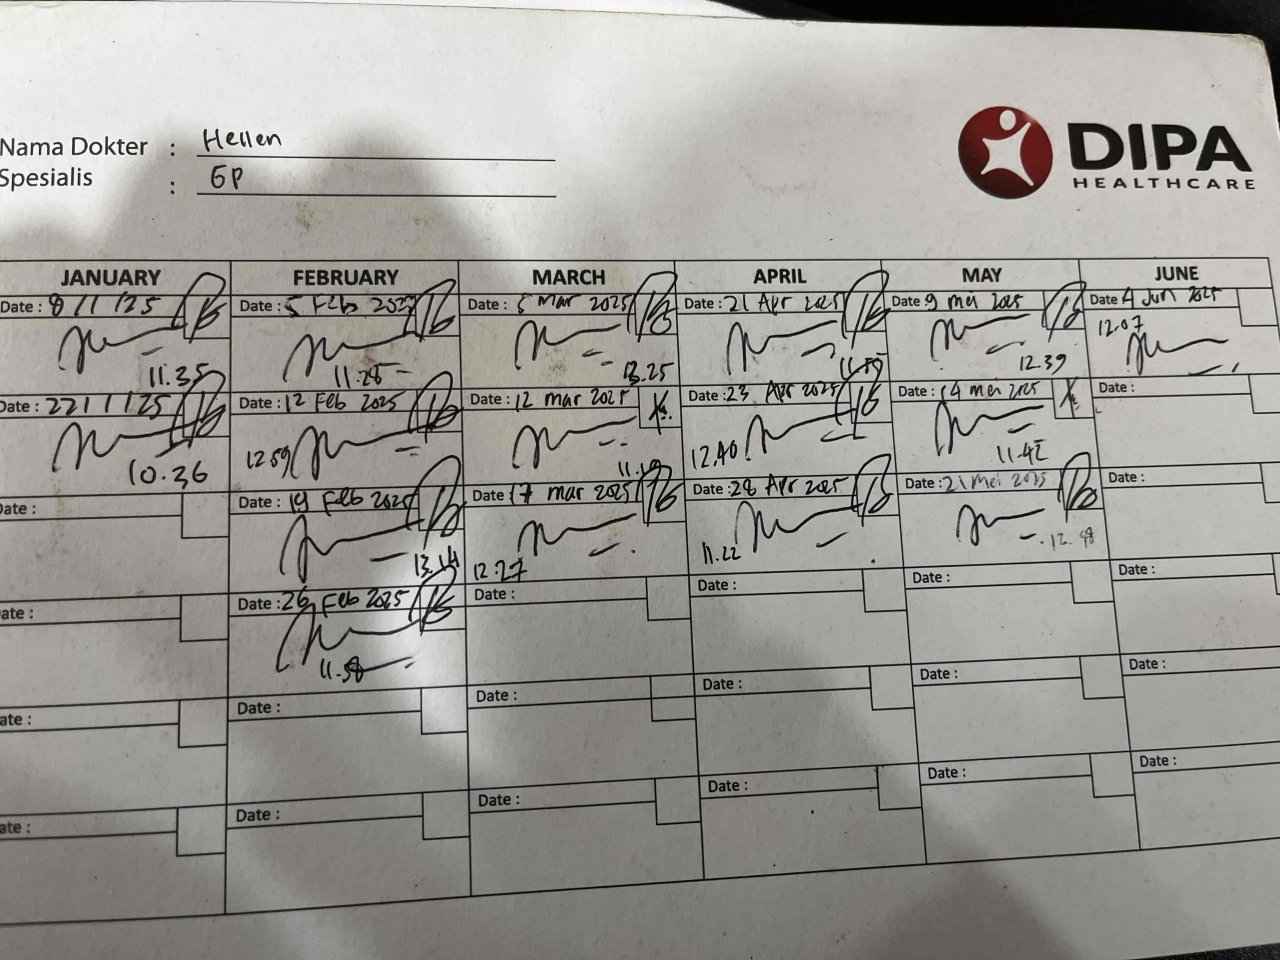 Nama Dokter : Hellen
Spesialis : GP
DIPA
HEALTHCARE
JANUARY FEBRUARY MARCH APRIL MAY JUNE
Date : 8/1/25 Date : 5 Feb 2025 Date : 5 Mar 2025 Date : 21 Apr 2025 Date 9 mei 2025 Date 4 Jun 2025
11.35 11.28 13.25 12.39 12.07
Date : 22/1/25 Date : 12 Feb 2025 Date : 12 mar 2025 Date : 23 Apr 2025 Date : 14 mei 2025 Date :
10.36 12.59 11.19 12.40 11.42
Date : Date : 19 Feb 2025 Date 17 mar 2025 Date : 28 Apr 2025 Date : 21 Mei 2025 Date :
13.14 12.27 11.22 12.48
ate : Date : 26 Feb 2025 Date : Date : Date : Date :
11.58
ate : Date : Date : Date : Date : Date :
ate : Date : Date : Date : Date : Date :